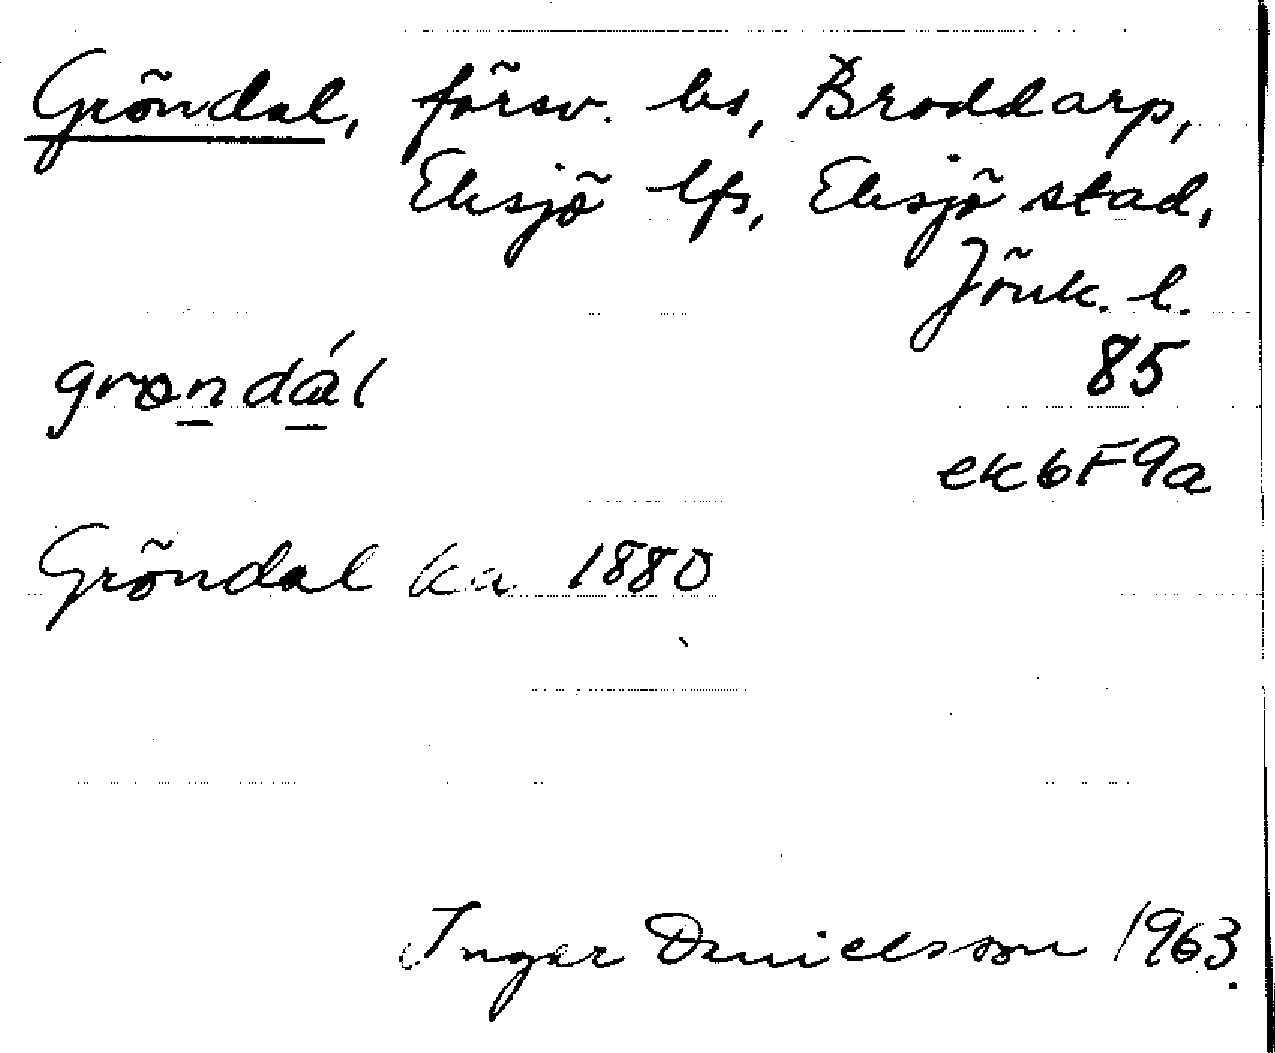 Gröndal, försv. bs, Broddarp,
Eksjö lfs, Eksjö stad,
Jönk. l.
grøndál 85
ek 6F9a
Gröndal ka 1880
Inger Danielsson 1963.